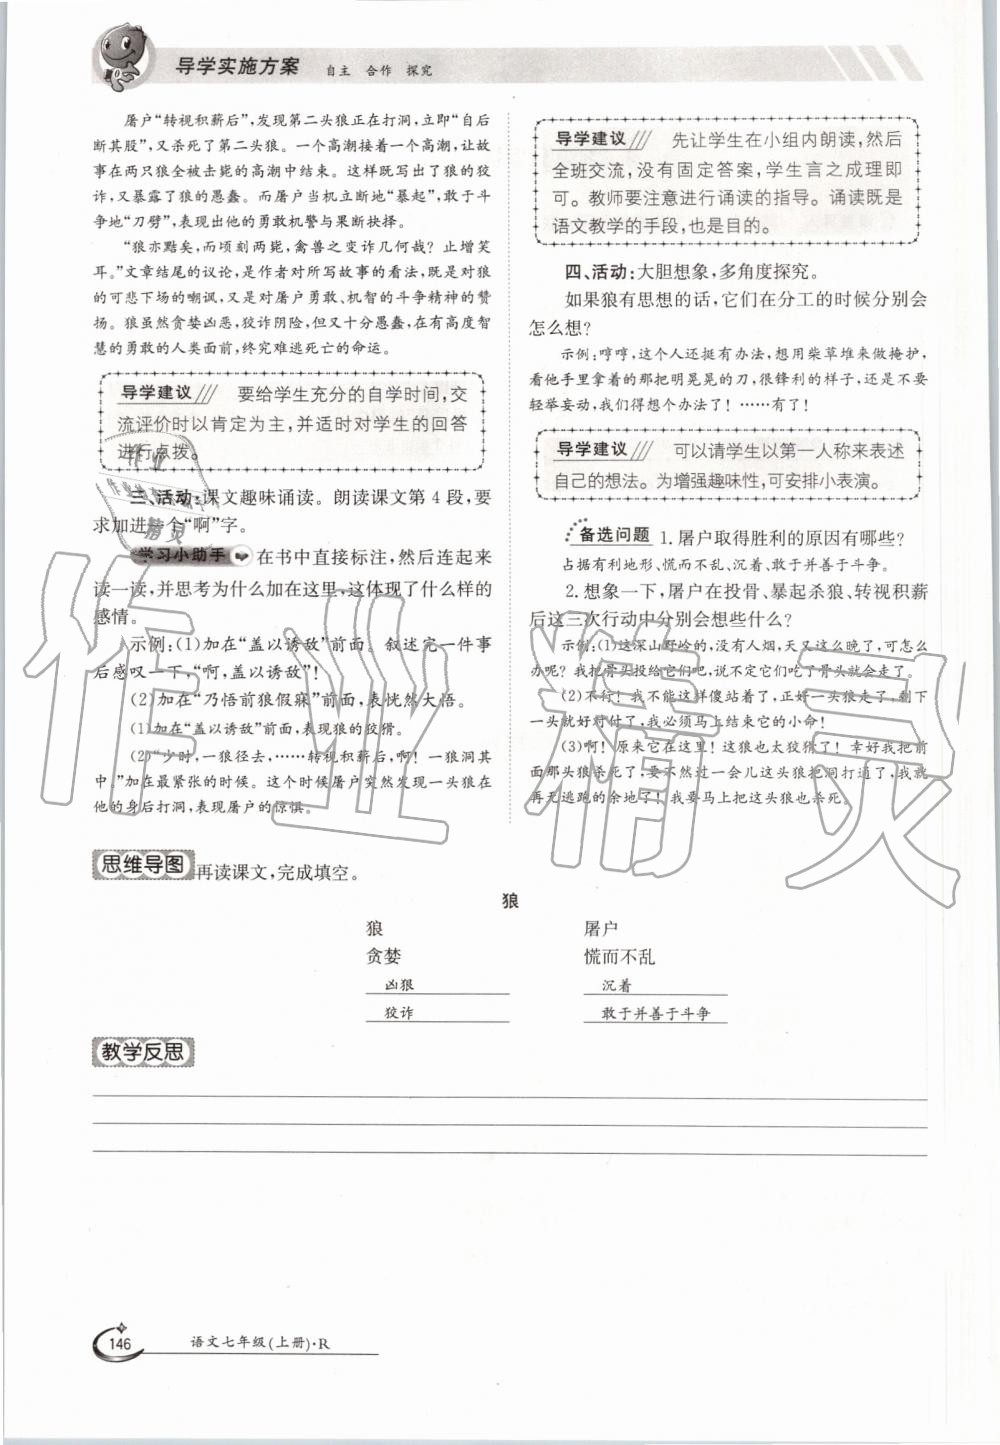 导学实施方案 自主 合作 探究
屠户“转视积薪后”,发现第二头狼正在打洞,立即“自后
断其股”,又杀死了第二头狼。一个高潮接着一个高潮,让故
事在两只狼全被击毙的高潮中结束。这样既写出了狼的狡
诈,又暴露了狼的愚蠢。而屠户当机立断地“暴起”,敢于斗
争地“刀劈”,表现出他的勇敢机警与果断抉择。
“狼亦黠矣,而顷刻两毙,禽兽之变诈几何哉?止增笑
耳。”文章结尾的议论,是作者对所写故事的看法,既是对狼
的可悲下场的嘲讽,又是对屠户勇敢、机智的斗争精神的赞
扬。狼虽然贪婪凶恶,狡诈阴险,但又十分愚蠢,在有高度智
慧的勇敢的人类面前,终究难逃死亡的命运。
导学建议 要给学生充分的自学时间,交
流评价时以肯定为主,并适时对学生的回答
进行点拨。
三、活动:课文趣味诵读。朗读课文第4段,要
求加进一个“啊”字。
学习小助手 在书中直接标注,然后连起来
读一读,并思考为什么加在这里,这体现了什么样的
感情。
示例:(1)加在“盖以诱敌”前面。叙述完一件事
后感叹一下,“啊,盖以诱敌”!
(2)加在“乃悟前狼假寐”前面,表恍然大悟。
(1)加在“盖以诱敌”前面,表现狼的狡猾。
(2)“少时,一狼径去,……转视积薪后,啊!一狼洞其
中。”加在最紧张的时候。这个时候屠户突然发现一头狼在
他的身后打洞,表现屠户的惊惧。
导学建议 先让学生在小组内朗读,然后
全班交流,没有固定答案,学生言之成理即
可。教师要注意进行诵读的指导。诵读既是
语文教学的手段,也是目的。
四、活动:大胆想象,多角度探究。
如果狼有思想的话,它们在分工的时候分别会
怎么想?
示例:哼哼,这个人还挺有办法,想用柴草堆来做掩护,
看他手里拿着的那把明晃晃的刀,很锋利的样子,还是不要
轻举妄动,我们得想个办法了!……有了!
导学建议 可以请学生以第一人称来表述
自己的想法。为增强趣味性,可安排小表演。
备选问题 1.屠户取得胜利的原因有哪些?
占据有利地形、慌而不乱、沉着、敢于并善于斗争。
2.想象一下,屠户在投骨、暴起杀狼、转视积薪
后这三次行动中分别会想些什么?
示例:(1)这深山野岭的,没有人烟,天又这么晚了,可怎么
办呢?我把骨头投给它们吧,说不定它们吃了骨头就会走了。
(2)不行!我不能这样傻站着了,正好一头狼走了,剩下
一头就好对付了,我必须马上结束它的小命!
(3)啊!原来它在这里!这狼也太狡猾了!幸好我把前
面那头狼杀死了,要不然再过一会儿这头狼把洞打通了,我就
再无逃跑的余地了!我要马上把这头狼也杀死。
思维导图 再读课文,完成填空。
狼
狼 屠户
贪婪 慌而不乱
凶狠 沉着
狡诈 敢于并善于斗争
教学反思
146 语文七年级(上册)·R
作业精灵